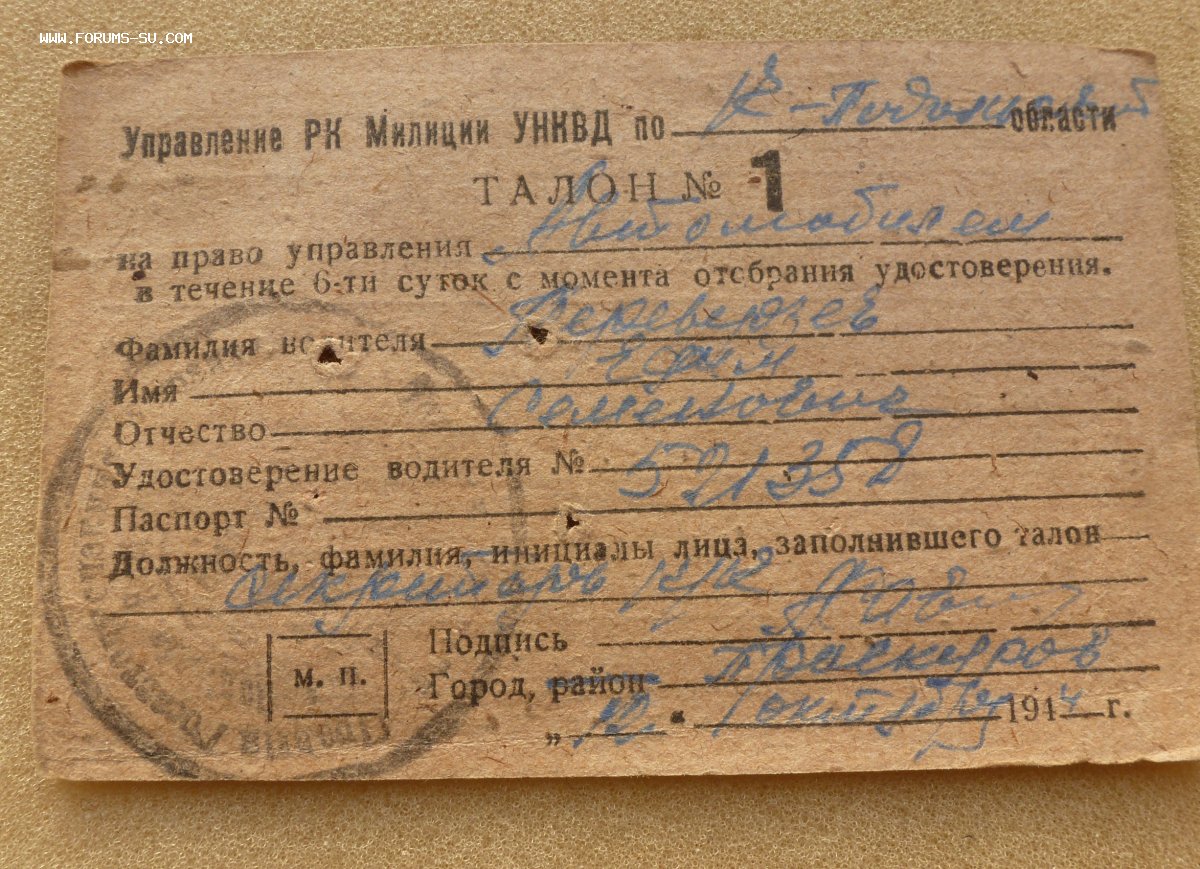 www.forums-su.com
Управление РК Милиции УНКВД по К-Подольской области
ТАЛОН № 1
на право управления Автомобилем
в течение 6-ти суток с момента отобрания удостоверения.
Фамилия водителя Переверзев
Имя Ефим
Отчество Семенович
Удостоверение водителя № 521358
Паспорт №
Должность, фамилия, инициалы лица, заполнившего талон
секретарь
Подпись
м. п.
Город, район Проскуров
„ “ октября 1944 г.